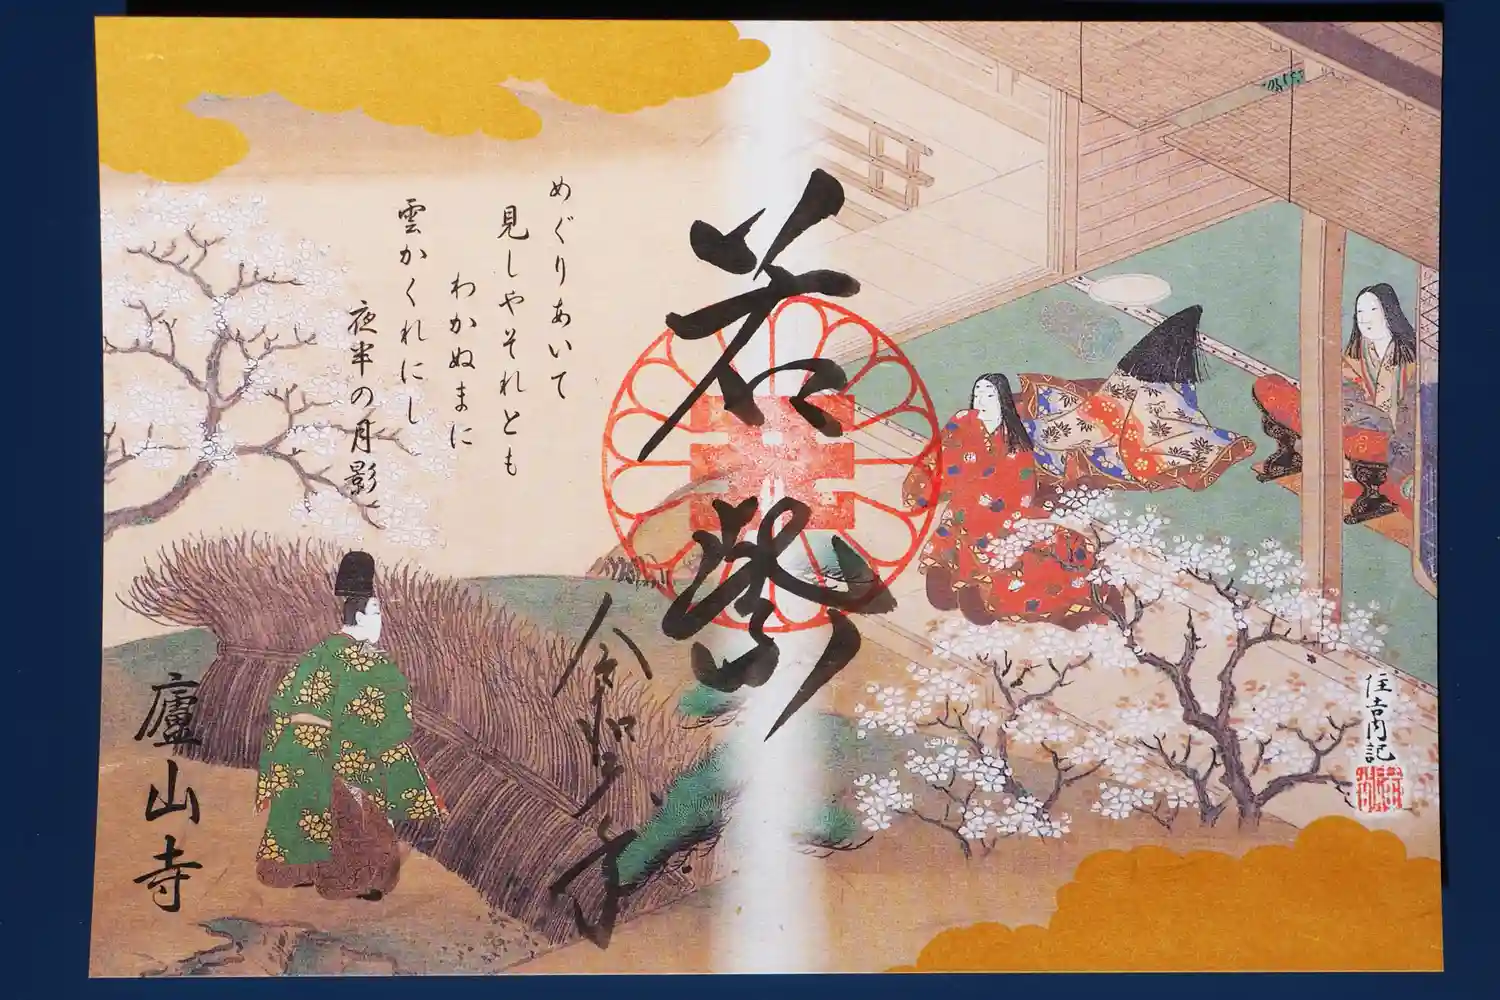 若紫
めぐりあいて
見しやそれとも
わかぬまに
雲かくれにし
夜半の月影
令和
廬山寺
住吉内記